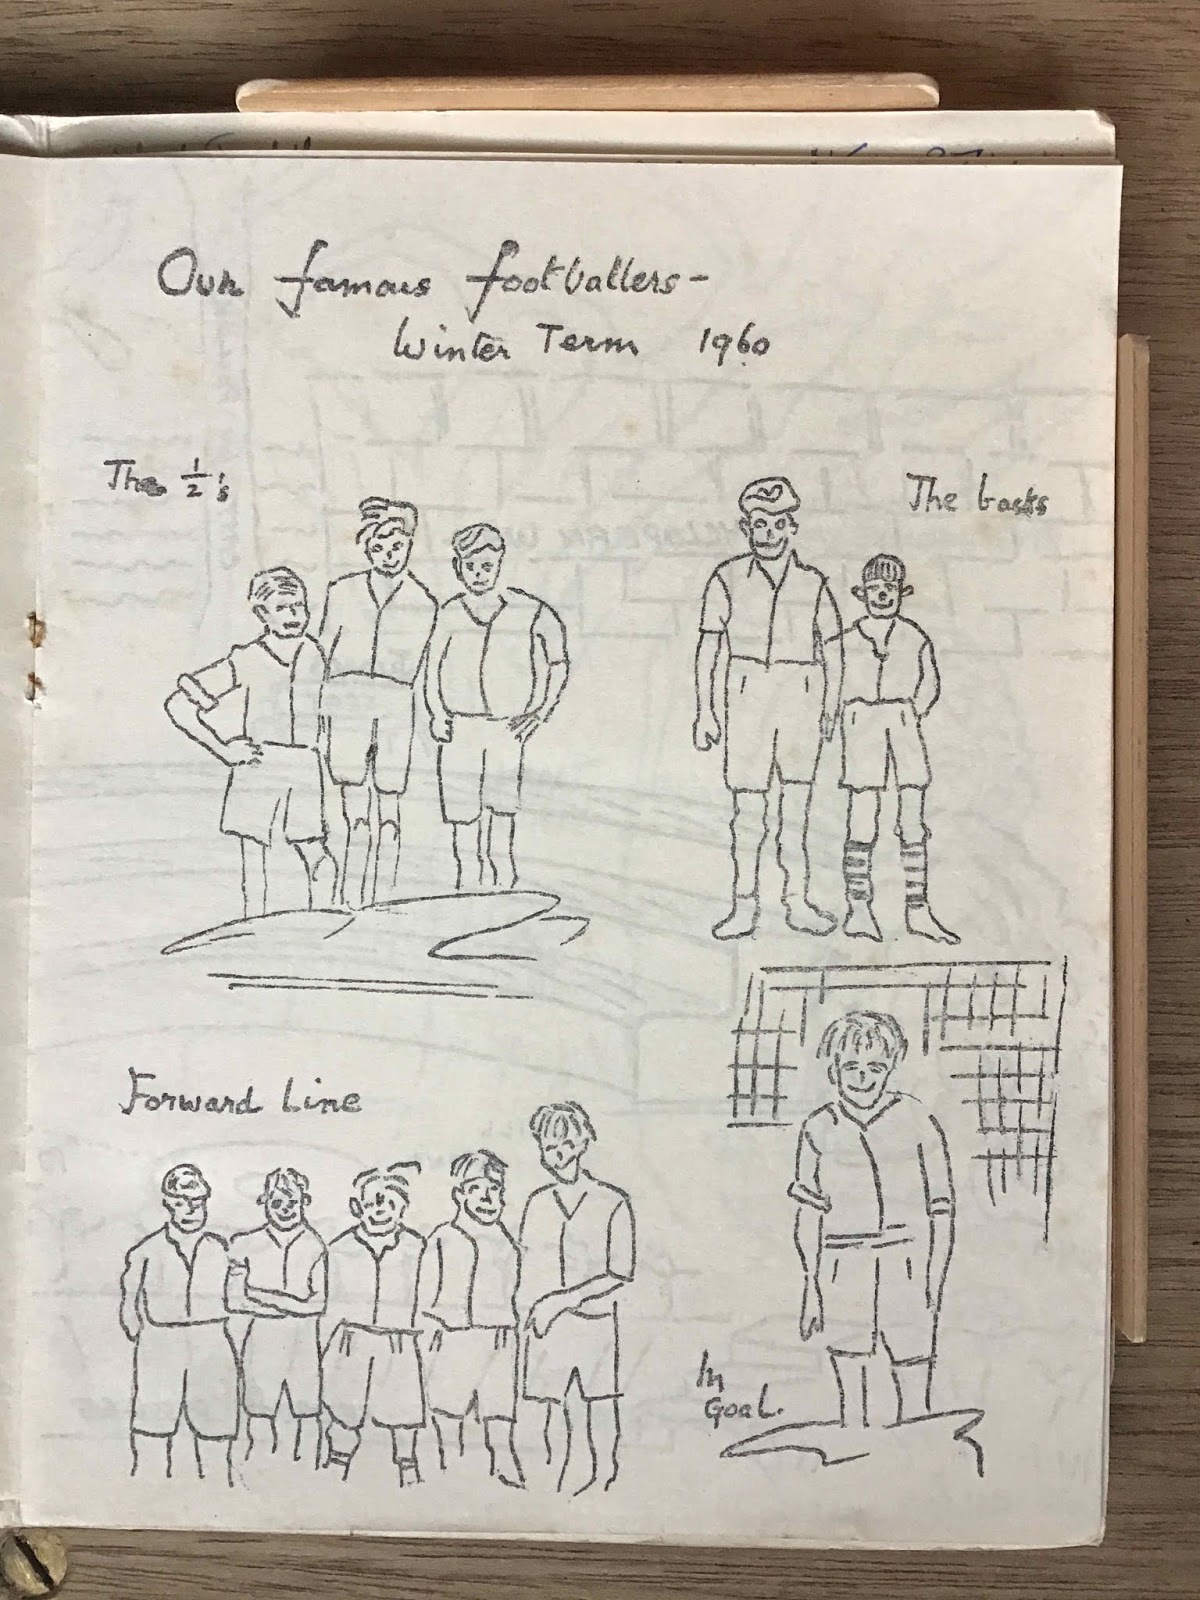 Our famous footballers-
Winter Term 1960
The ½'s
The backs
Forward Line
In
Goal.